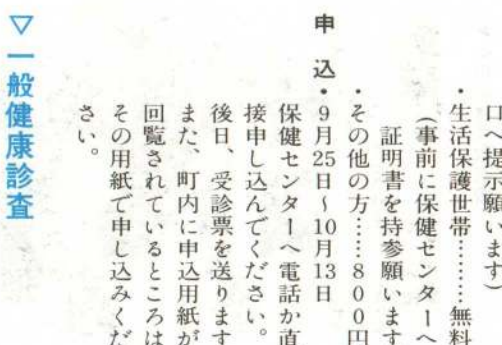 口へ提示願います)
・生活保護世帯………無料
(事前に保健センターへ
証明書を持参願います
・その他の方……800円
申込・9月25日~10月13日
保健センターへ電話か直
接申し込んでください。
後日、受診票を送ります
また、町内に申込用紙が
回覧されているところは
その用紙で申し込みくだ
さい。
▽一般健康診査